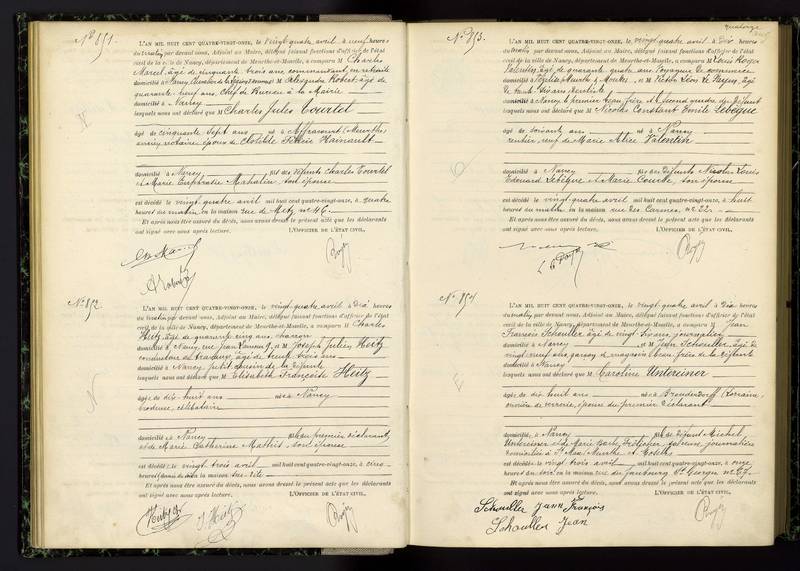 N° 851.
L'AN MIL HUIT CENT QUATRE-VINGT-ONZE, le vingt quatre avril à neuf heures
du matin par devant nous, Adjoint au Maire, délégué faisant fonctions d'officier de l'état
civil de la ville de Nancy, département de Meurthe-et-Moselle, a comparu M Charles
Marcel, âgé de cinquante trois ans, commandant en retraite
domicilié à Nancy, et M Alexandre Robert âgé de
quarante neuf ans, Chef de Bureau à la Mairie
domicilié à Nancy
lesquels nous ont déclaré que M Charles Jules Tourtel
âgé de cinquante sept ans né à Affracourt (Meurthe)
ancien notaire époux de Clotilde Hainault
domicilié à Nancy fils des défunts Charles Tourtel
et Marie Euphrasie Mathieu, son épouse
est décédé le vingt quatre avril mil huit cent quatre-vingt-onze, à quatre
heures du matin, en la maison rue de Metz n° 46.
Et après nous être assuré du décès, nous avons dressé le présent acte que les déclarants
ont signé avec nous après lecture. L'OFFICIER DE L'ÉTAT CIVIL,
N° 852
L'AN MIL HUIT CENT QUATRE-VINGT-ONZE, le vingt quatre avril à dix heures
du matin par devant nous, Adjoint au Maire, délégué faisant fonctions d'officier de l'état
civil de la ville de Nancy, département de Meurthe-et-Moselle, a comparu M Charles
Hertz, âgé de quarante cinq ans, maçon
domicilié à Nancy, rue Jean Lamour 9, et M Joseph Julien Hertz
conducteur de travaux, âgé de trente trois ans
domicilié à Nancy, petit cousin de la défunte
lesquels nous ont déclaré que M Elisabeth Françoise Hertz
âgée de dix huit ans née à Nancy
brodeuse, célibataire
domiciliée à Nancy fille du premier déclarant
et de Marie Catherine Mathis, son épouse
est décédée le vingt trois avril mil huit cent quatre-vingt-onze, à cinq
heures
Et après nous être assuré du décès, nous avons dressé le présent acte que les déclarants
ont signé avec nous après lecture. L'OFFICIER DE L'ÉTAT CIVIL,
N° 853.
L'AN MIL HUIT CENT QUATRE-VINGT-ONZE, le vingt quatre avril à dix heures
du matin par devant nous, Adjoint au Maire, délégué faisant fonctions d'officier de l'état
civil de la ville de Nancy, département de Meurthe-et-Moselle, a comparu M Louis Roger
Valentin, âgé de quarante quatre ans, Voyageur de commerce
âgé
de trente six ans, dentiste
domicilié à Nancy le premier beau frère et le second gendre du défunt
lesquels nous ont déclaré que M Nicolas Constant Emile Lebègue
âgé de soixante ans né à Nancy
rentier, veuf de Marie Alice Valentin
domicilié à Nancy fils des défunts Nicolas Louis
Edouard Lebègue et Marie Courte, son épouse
est décédé le vingt-quatre avril mil huit cent quatre-vingt-onze, à huit
heures du matin, en la maison rue des Carmes, n° 22.
Et après nous être assuré du décès, nous avons dressé le présent acte que les déclarants
ont signé avec nous après lecture. L'OFFICIER DE L'ÉTAT CIVIL,
N° 854
L'AN MIL HUIT CENT QUATRE-VINGT-ONZE, le vingt quatre avril à dix heures
du matin, par devant nous, Adjoint au Maire, délégué faisant fonctions d'officier de l'état
civil de la ville de Nancy, département de Meurthe-et-Moselle, a comparu M Jean
François Schouller âgé de vingt six ans, journalier
domicilié à Nancy et M Jean Schouller, âgé de
vingt neuf ans garçon de magasin beau frère de la défunte
domicilié à Nancy
lesquels nous ont déclaré que M Caroline Untereiner
âgée de dix huit ans née à Brouderdorff Lorraine,
ouvrière de verrerie, épouse du premier déclarant
domiciliée à Nancy fille de défunt Michel
Untereiner et de Marie journalière
est décédée le vingt trois avril mil huit cent quatre-vingt-onze, à onze
heures du soir, en la maison rue du faubourg St Georges n° 27.
Et après nous être assuré du décès, nous avons dressé le présent acte que les déclarants
ont signé avec nous après lecture. L'OFFICIER DE L'ÉTAT CIVIL,
Schouller Jean François
Schouller Jean